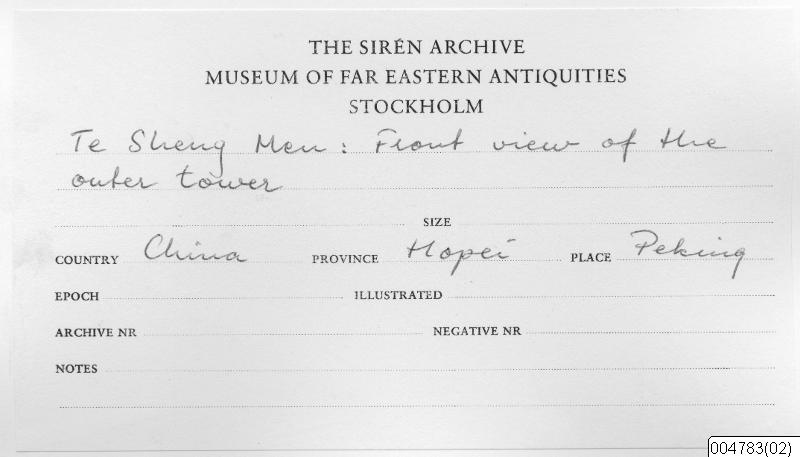 THE SIRÉN ARCHIVE
MUSEUM OF FAR EASTERN ANTIQUITIES
STOCKHOLM
Te Sheng Men: Front view of the
outer tower
SIZE
COUNTRY China PROVINCE Hopei PLACE Peking
EPOCH ILLUSTRATED
ARCHIVE NR NEGATIVE NR
NOTES
004783(02)